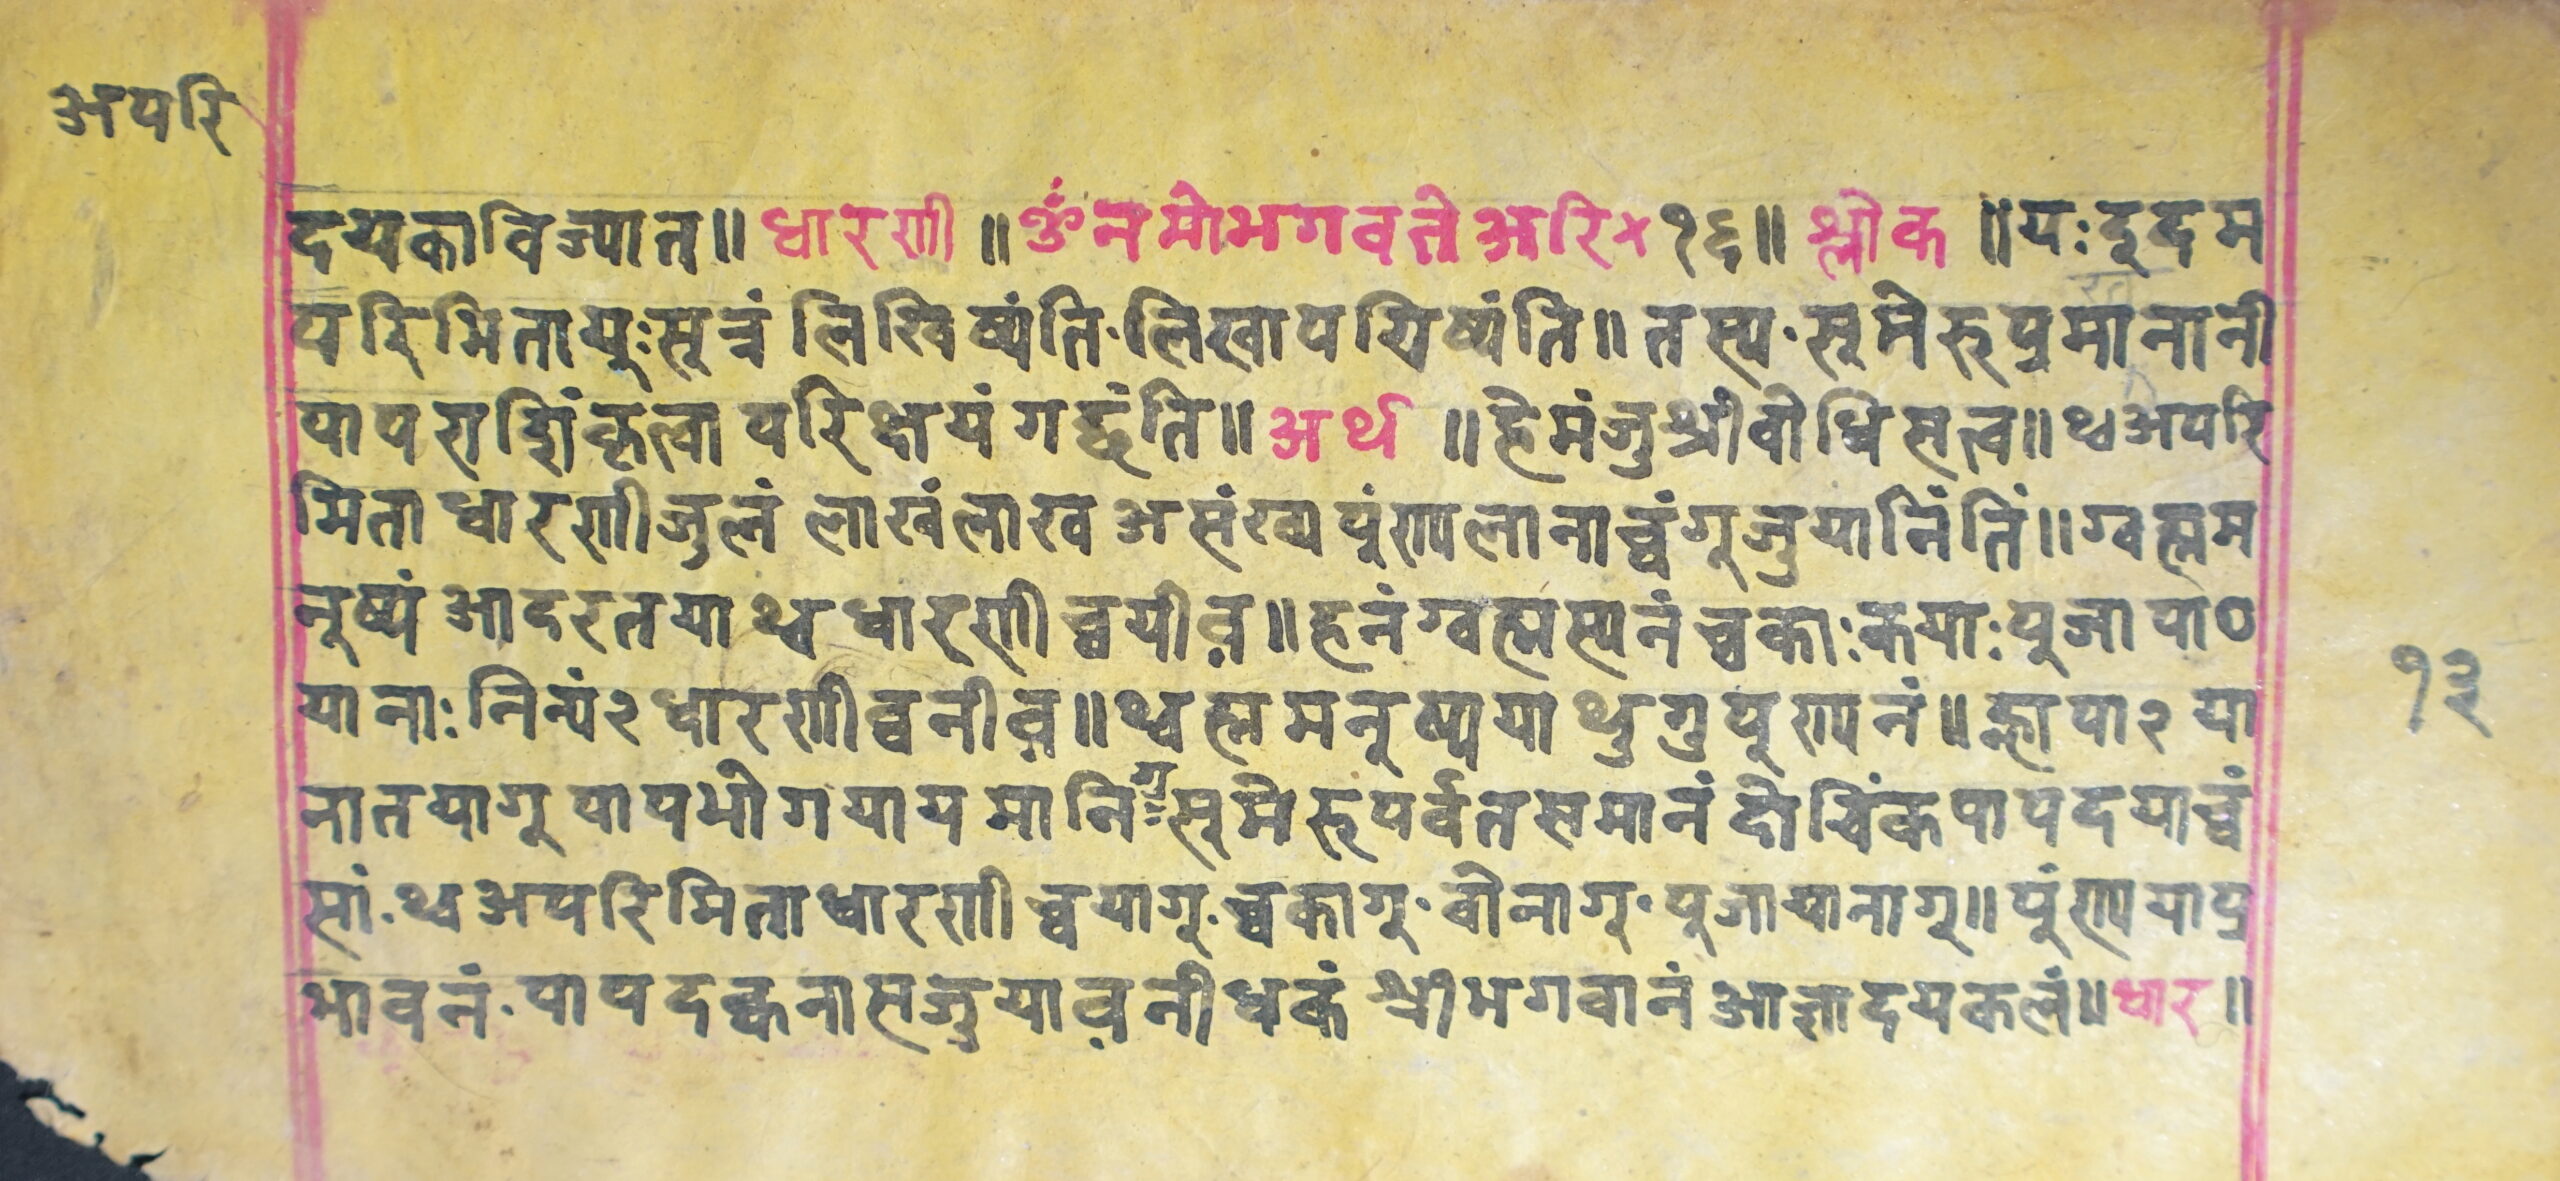 अपरि
दयकाविज्यात॥ धारणी ॥ ॐनमोभगवतेअरि× १६॥ श्लोक ॥यःदूदम
परिमितायुःसूत्रं लिखिष्यंति·लिखापयिष्यंति॥ तस्य·सूमेरुप्रमानानी
पापराशिंकृत्वा परिक्षयं गछंति॥ अर्थ ॥हेमंजुश्रीवोधिसत्व॥थ्वअपरि
मिता धारणीजुलं लाखंलाख असंख्य पुंण्यलानाच्वंगूजुयानिंतिं॥ग्वह्मम
नूष्यं आदरतया थ्व धारणी च्वयीव़॥हनंग्वह्मस्यनं च्वकाःकयाःपूजा पाठ
यानाःनित्यं२ धारणीव्वनीव़॥थ्वह्ममनूष्यया थुगुपूण्यनं॥ह्लापा२ या
नातयागू पापभोगयायमानिगु सूमेरूपर्वतसमानं दोचिंकपापदयाच्वं
सां·थ्वअपरिमिताधारणी च्वयागू·च्वकागू·वोनागू·पूजायानागू॥पुंण्ययाप्र
भावनं·पापदक्वनासजुयाव़नीधकं श्रीभगवानंआज्ञादयकलं॥धार॥
१३